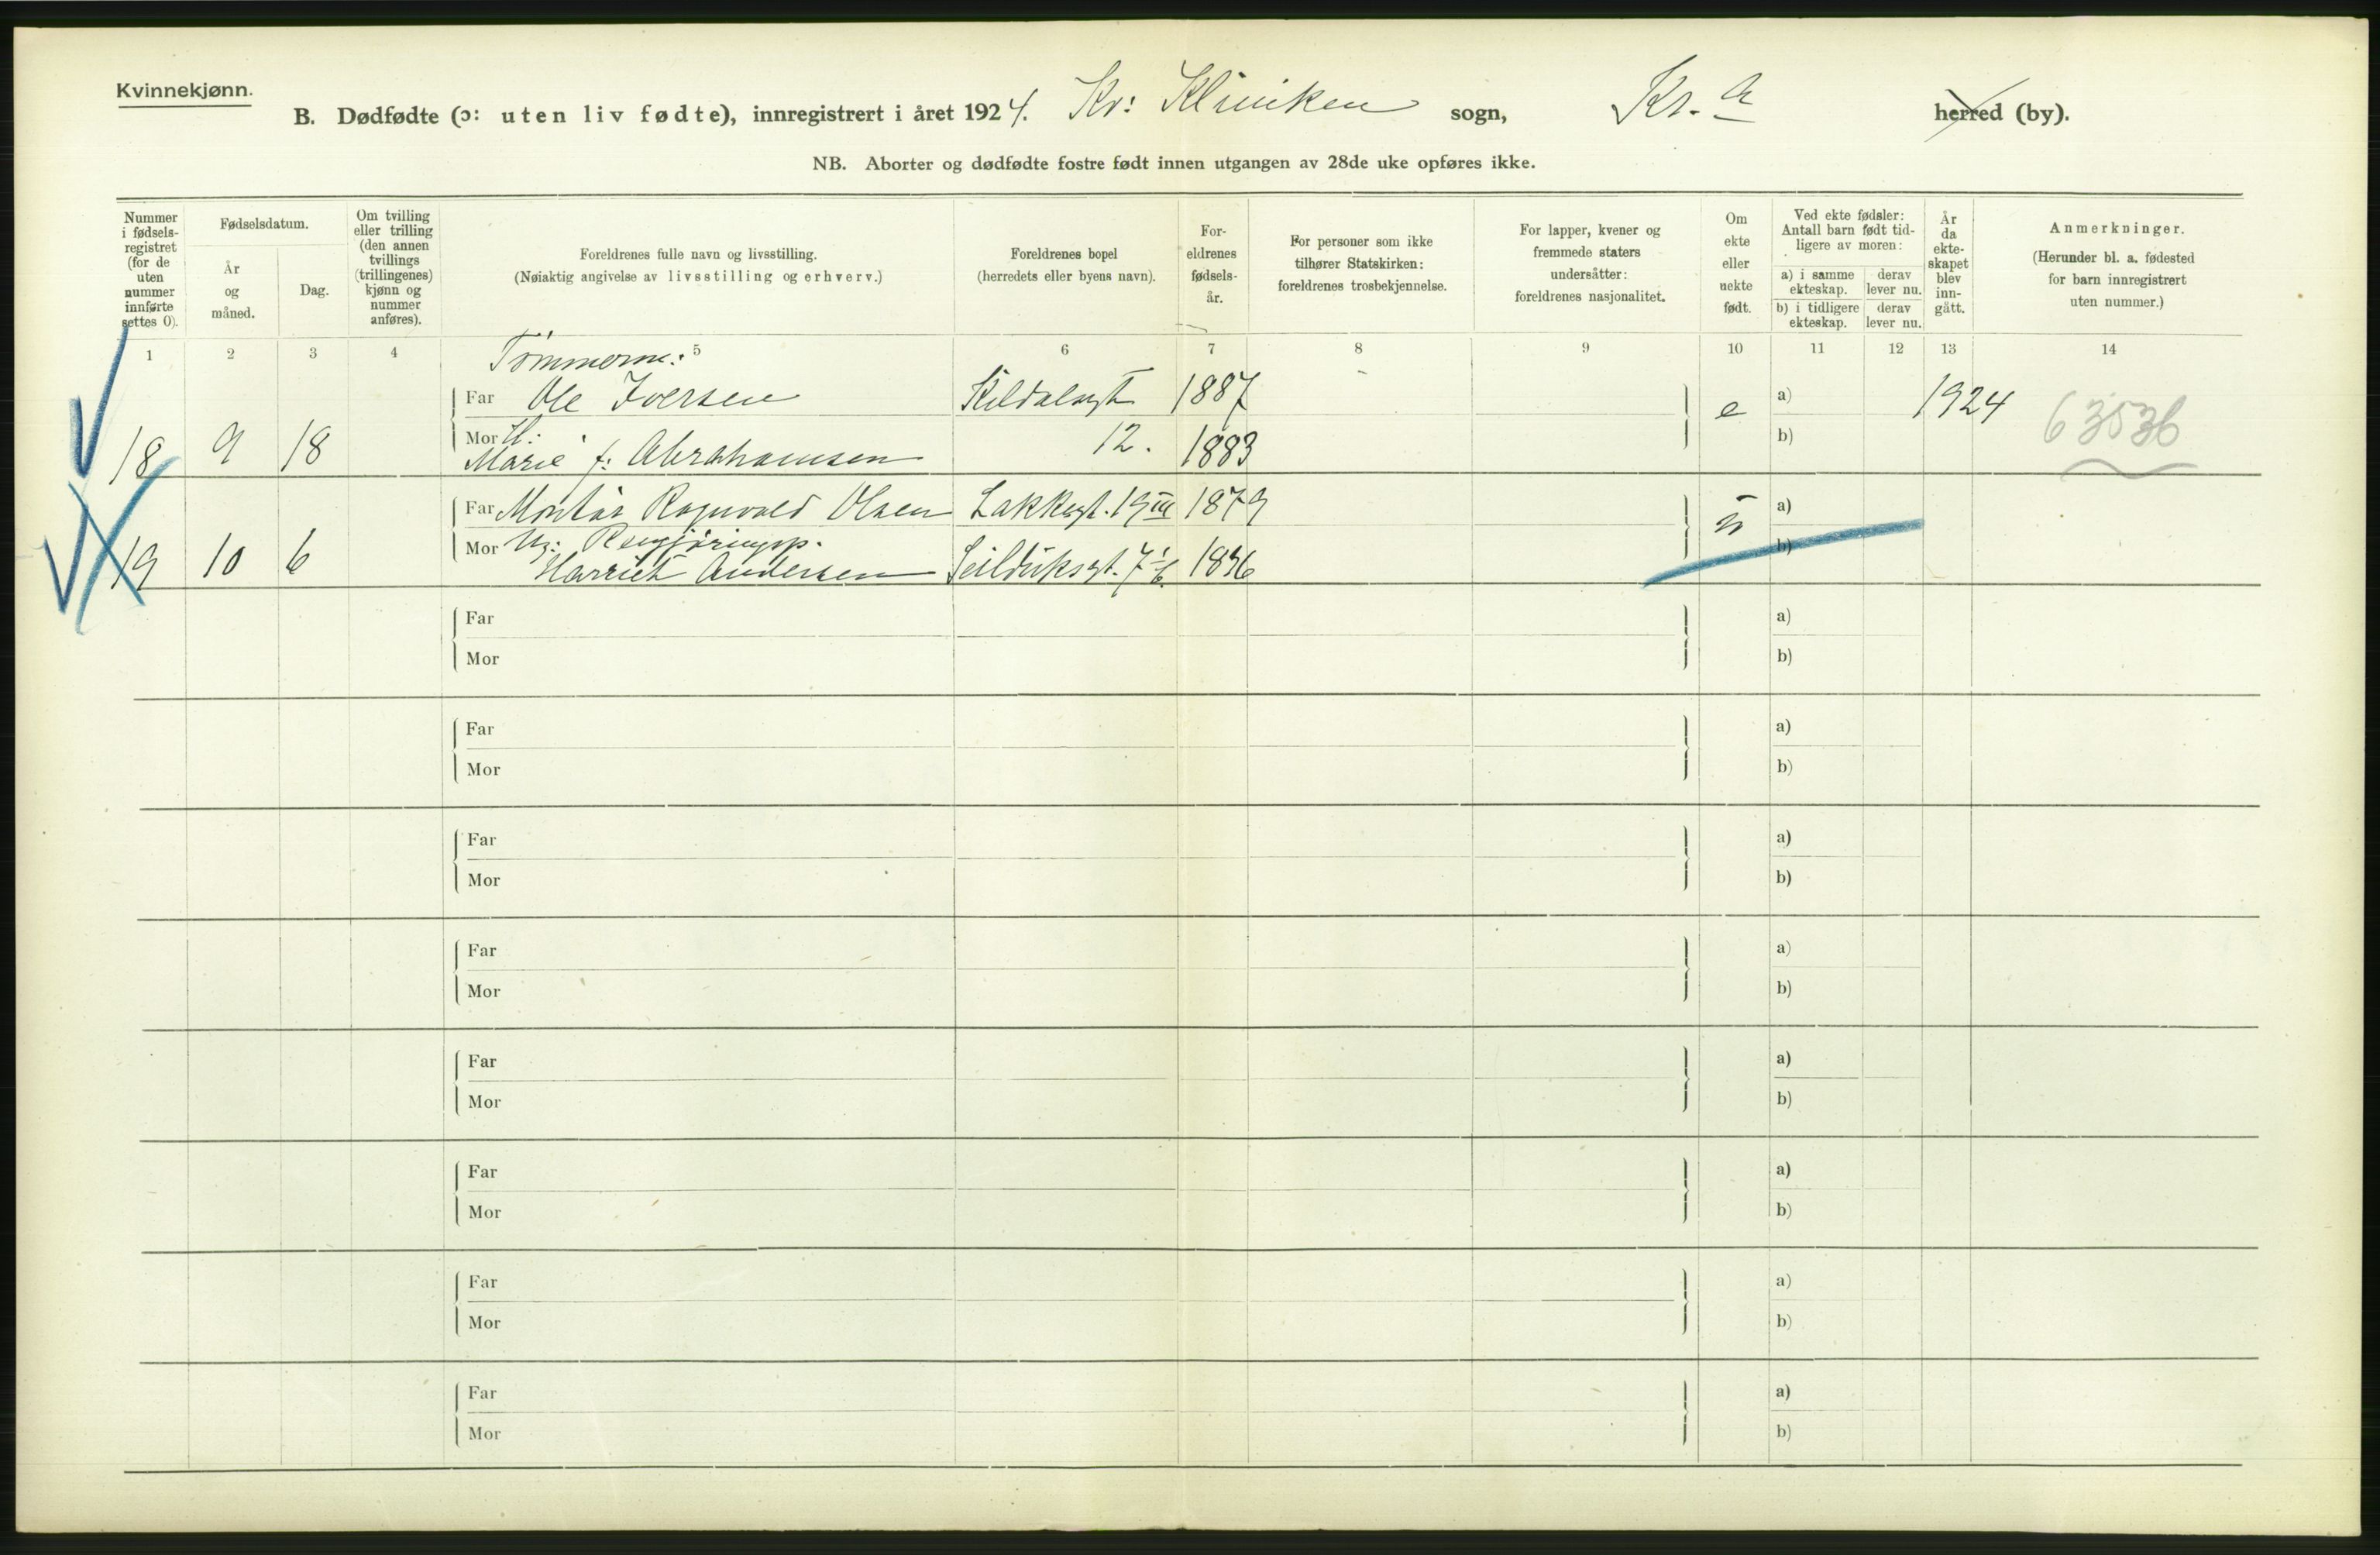 Kvinnekjønn.
B. Dødfødte (ɔ: uten liv fødte), innregistrert i året 1924. Kv: Kliniken sogn, Kr.a herred (by).
NB. Aborter og dødfødte fostre født innen utgangen av 28de uke opføres ikke.
Nummer i fødsels-registret (for de uten nummer innførte settes 0).
Fødselsdatum.
År og måned.
Dag.
Om tvilling eller trilling (den annen tvillings (trillingenes) kjønn og nummer anføres).
Foreldrenes fulle navn og livsstilling.
(Nøiaktig angivelse av livsstilling og erhverv.)
Foreldrenes bopel
(herredets eller byens navn).
For-eldrenes fødsels-år.
For personer som ikke tilhører Statskirken: foreldrenes trosbekjennelse.
For lapper, kvener og fremmede staters undersåtter: foreldrenes nasjonalitet.
Om ekte eller uekte født.
Ved ekte fødsler: Antall barn født tid-ligere av moren:
a) i samme ekteskap. derav lever nu.
b) i tidligere ekteskap. derav lever nu.
År da ekte-skapet blev inn-gått.
Anmerkninger.
(Herunder bl. a. fødested for barn innregistrert uten nummer.)
1 2 3 4 5 6 7 8 9 10 11 12 13 14
Tømmerm:
Far Ole Iversen 1887 e a) 1924 63536
18 9 18 Mor H: Marie f: Abrahamsen 12. 1883 b)
Far Montør Ragnvald Olsen Lakkegt. 19 III 1879 u a)
19 10 6 Mor Ug: Harriet Andersen Seilduksgt. 7 b)
Far a)
Mor b)
Far a)
Mor b)
Far a)
Mor b)
Far a)
Mor b)
Far a)
Mor b)
Far a)
Mor b)
Far a)
Mor b)
Far a)
Mor b)